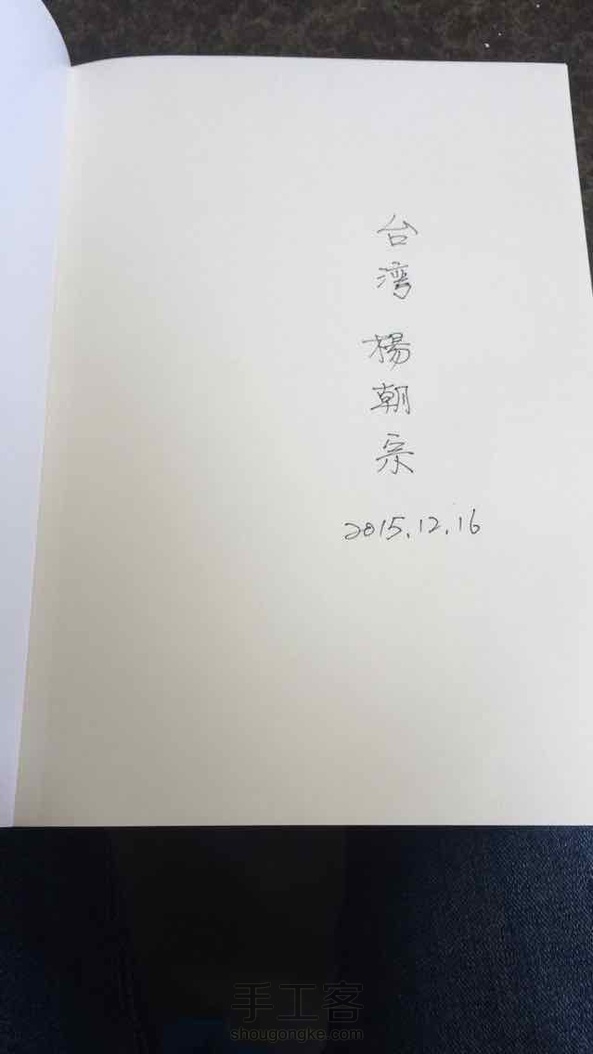 台湾 楊朝宗
2015.12.16
手工客
shougongke.com